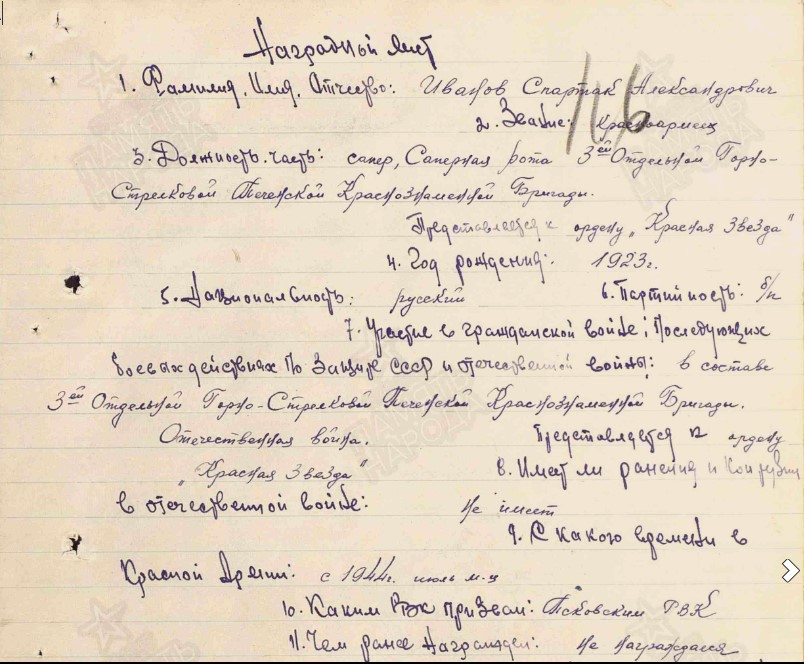 Наградной лист
1. Фамилия, Имя, Отчество: Иванов Спартак Александрович
2. Звание: красноармеец
3. Должность, часть: сапер, Саперная рота 3ей Отдельной Горно-
Стрелковой Печенской Краснознаменной Бригады.
Представляется к ордену „Красная Звезда"
4. Год рождения: 1923г.
5. Национальность: русский 6. Партийность: б/п
7. Участие в гражданской войне; последующих
боевых действиях по защите СССР и отечественной войны: в составе
3ей Отдельной Горно-Стрелковой Печенской Краснознаменной Бригады.
Отечественная война. Представляется к ордену
„Красная Звезда"
8. Имеет ли ранения и контузии
в отечественной войне: не имеет
9. С какого времени в
Красной Армии: с 1944г. июль м-ц
10. Каким РВК призван: Псковским РВК
11. Чем ранее награжден: не награждался